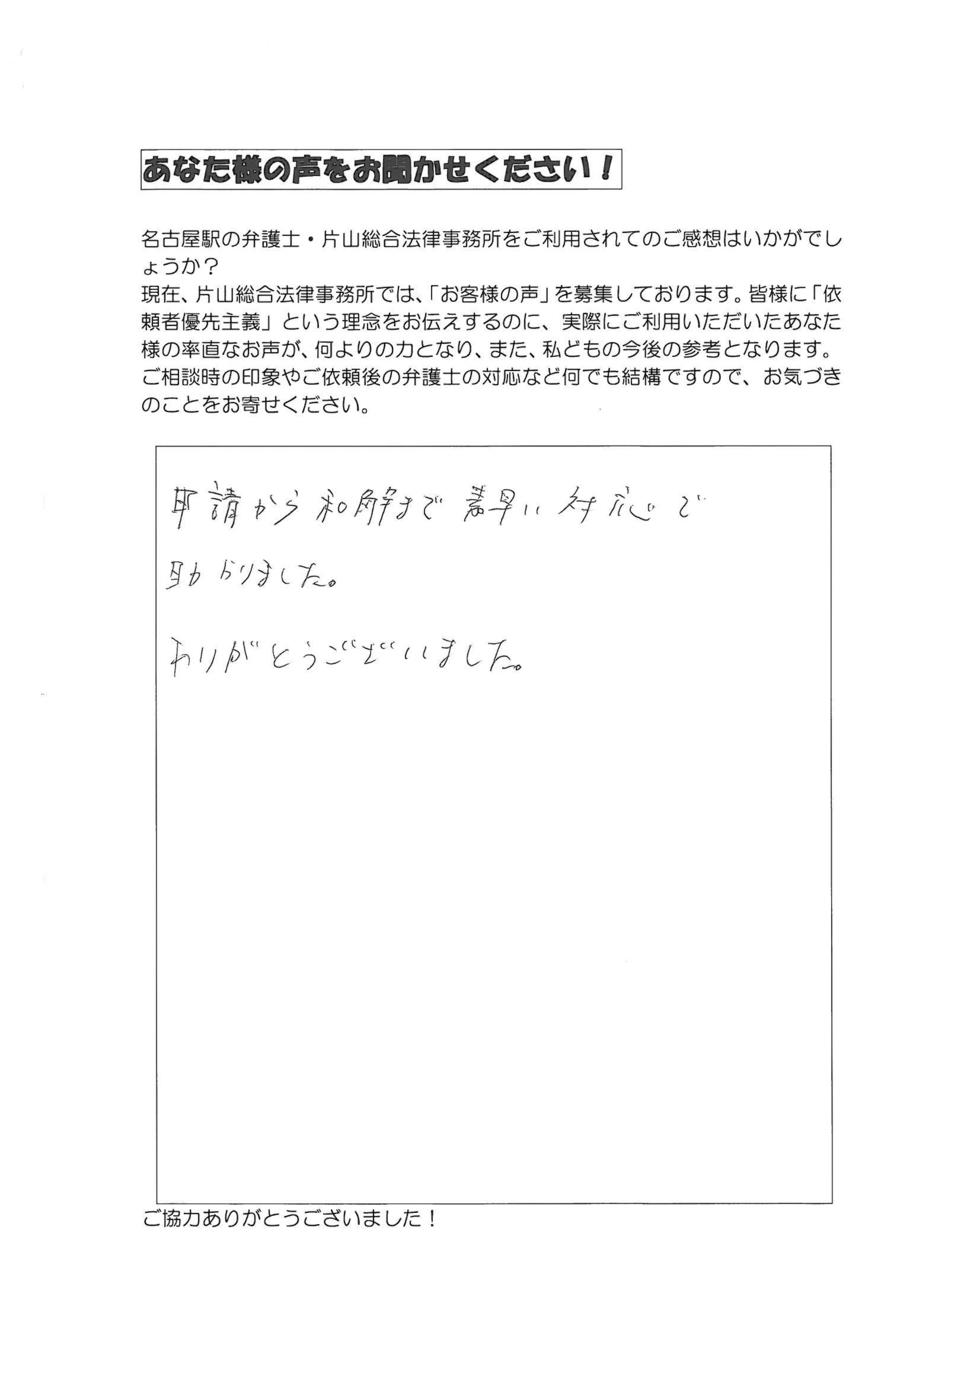 あなた様の声をお聞かせください！
名古屋駅の弁護士・片山総合法律事務所をご利用されてのご感想はいかがでし
ょうか？
現在、片山総合法律事務所では、「お客様の声」を募集しております。皆様に「依
頼者優先主義」という理念をお伝えするのに、実際にご利用いただいたあなた
様の率直なお声が、何よりの力となり、また、私どもの今後の参考となります。
ご相談時の印象やご依頼後の弁護士の対応など何でも結構ですので、お気づき
のことをお寄せください。
申請から和解まで素早い対応で
助かりました。
ありがとうございました。
ご協力ありがとうございました！